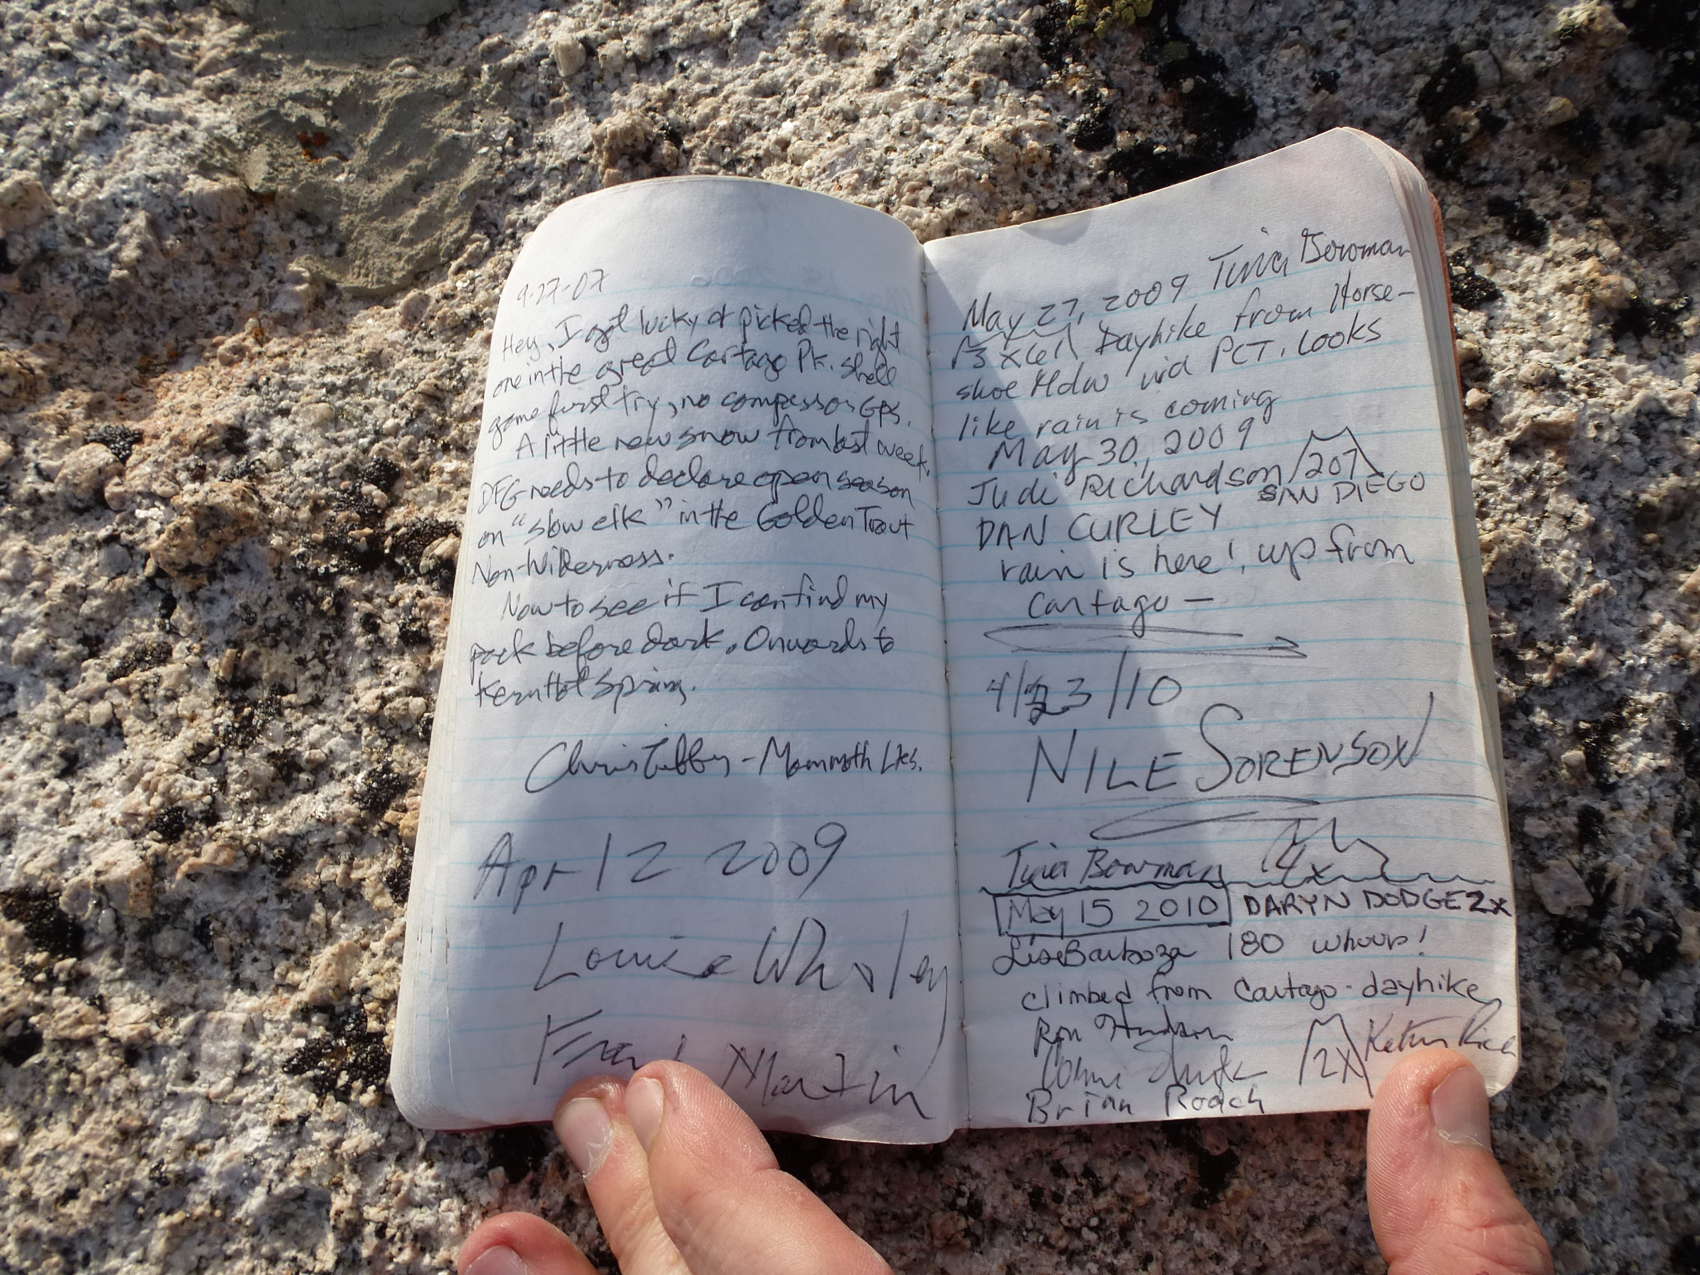 9-27-07
Hey, I got lucky & picked the right
one in the great Cartago Pk. shell
game first try, no compass or GPS.
A little new snow from last week.
DFG needs to declare open season
on "slow elk" in the Golden Trout
Non-Wilderness.
Now to see if I can find my
pack before dark. Onwards to
Kern Hot Spring.
Chris Libby - Mammoth Lks.
Apr 12 2009
Louise Wholey
Frank Martin
May 27, 2009 Tina Bowman
Dayhike from Horse-
shoe Mdw via PCT. Looks
like rain is coming
May 30, 2009
Judi Richardson 207
SAN DIEGO
DAN CURLEY
rain is here! up from
Cartago —
4/23/10
NILE SORENSON
Tina Bowman 4x
May 15 2010 DARYN DODGE 2x
Lisa Barboza 180 whoop!
climbed from Cartago - dayhike
Ron Hudson
2x Kathy Rich
Brian Roach